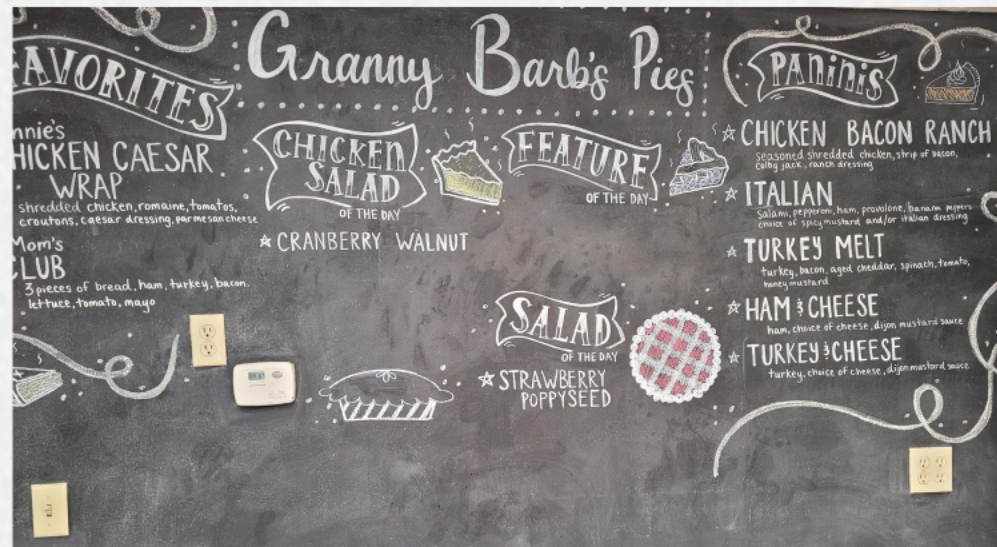 Granny Barb's Pies
AVORITES
nnie's
HICKEN CAESAR
WRAP
shredded chicken, romaine, tomatos,
croutons, caesar dressing, parmesan cheese
Mom's
CLUB
3 pieces of bread, ham, turkey, bacon,
lettuce, tomato, mayo
CHICKEN
SALAD
OF THE DAY
CRANBERRY WALNUT
FEATURE
OF THE DAY
SALAD
OF THE DAY
STRAWBERRY
POPPYSEED
PANINIS
CHICKEN BACON RANCH
seasoned shredded chicken, strip of bacon,
colby jack, ranch dressing
ITALIAN
Salami, pepperoni, ham, provolone, banana peppers
choice of spicy mustard and/or italian dressing
TURKEY MELT
turkey, bacon, aged cheddar, spinach, tomato,
honey mustard
HAM & CHEESE
ham, choice of cheese, dijon mustard sauce
TURKEY & CHEESE
turkey, choice of cheese, dijon mustard sauce